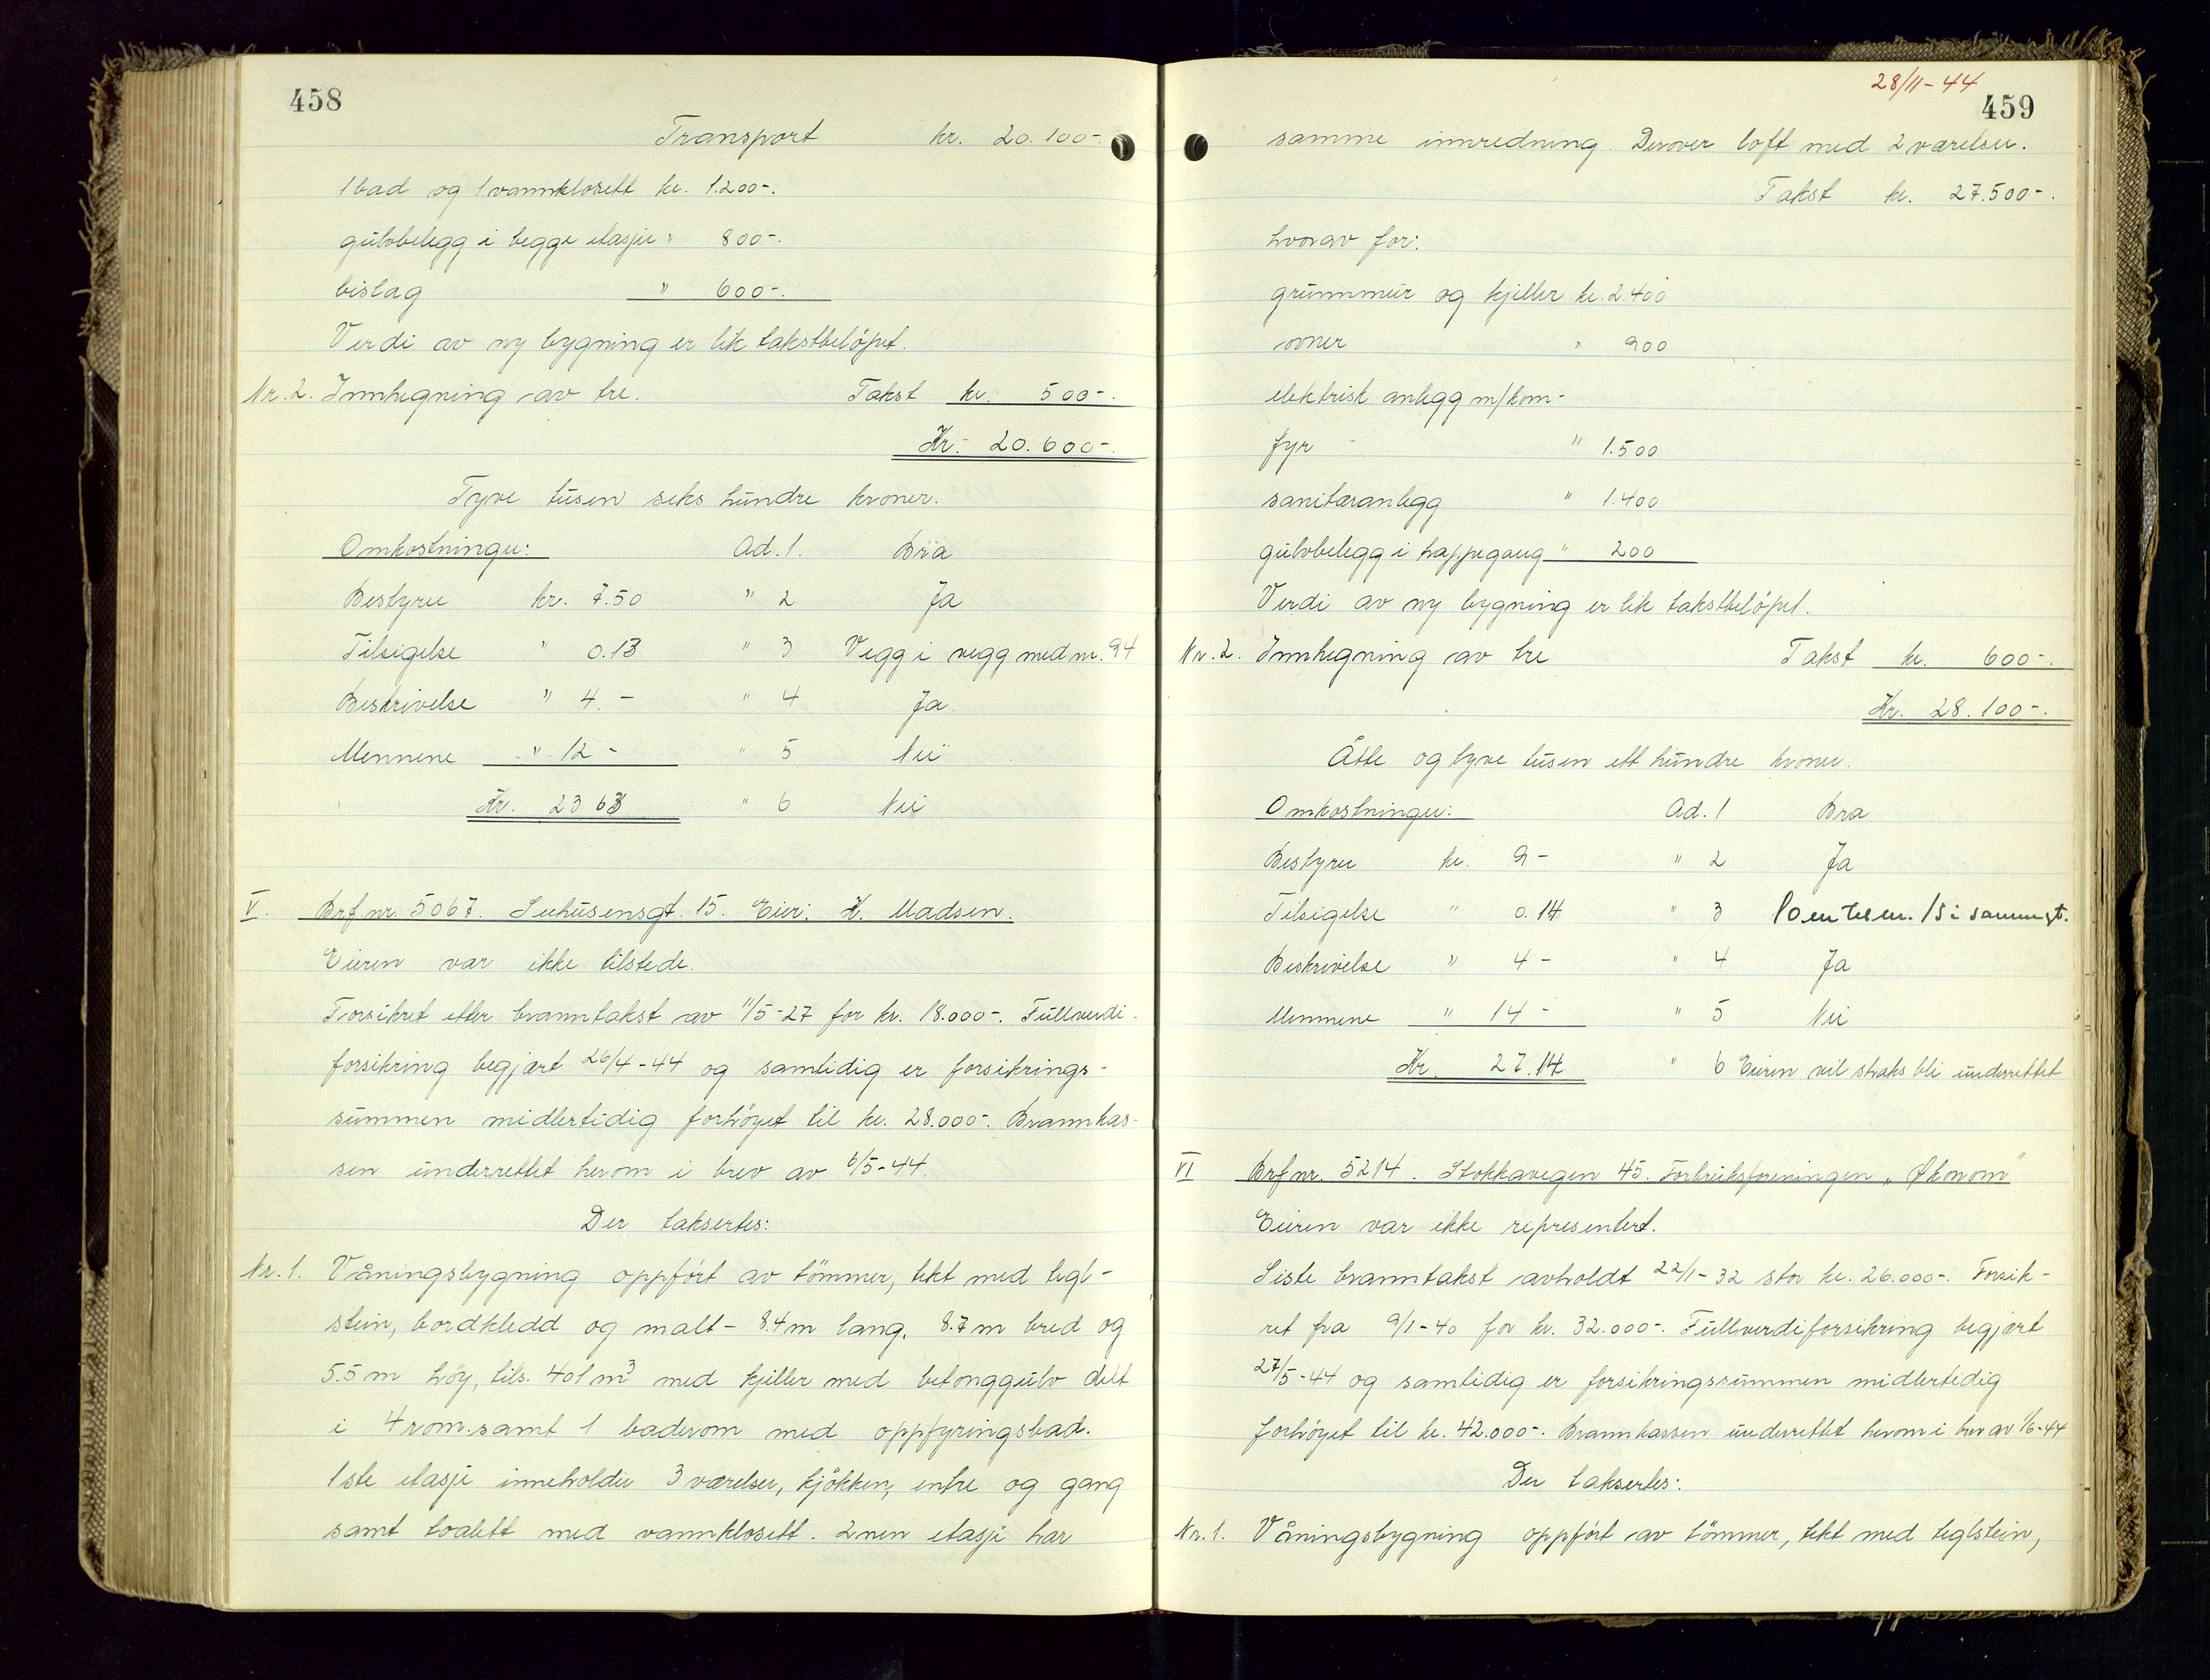 458
Transport kr. 20.100-.
1 bad og 1 vannklosett kr. 1.200-.
gulvbelegg i begge etasjer " 800-.
bislag " 600-.
Verdi av ny bygning er lik takstbeløpet.
Nr. 2. Innhegning av tre. Takst kr. 500-.
Kr. 20.600-.
Tyve tusen seks hundre kroner.
Omkostninger: Ad. 1. Bra
Bestyrer kr. 7.50 " 2 Ja
Tilsigelse " 0.13 " 3 Vegg i vegg med nr. 94
Beskrivelse " 4.- " 4 Ja.
Mennene " 12- " 5 Nei
Kr. 23 63 " 6 Nei
V. Brf.nr. 5067. Suhusensgt. 15. Eier: H. Madsen.
Eieren var ikke tilstede.
Forsikret etter branntakst av 11/5-27 for kr. 18.000-. Fullverdi-
forsikring begjært 26/4-44 og samtidig er forsikrings-
summen midlertidig forhøyet til kr. 28.000-. Brannkas-
sen underrettet herom i brev av 6/5-44.
Der taksertes:
Nr. 1. Våningsbygning oppført av tømmer, tekt med tegl-
stein, bordkledd og malt - 8.4 m lang, 8.7 m bred og
5.5 m høy, tils. 401 m³ med kjeller med betonggulv delt
i 4 rom samt 1 baderom med oppfyringsbad.
1ste etasje inneholder 3 værelser, kjøkken, entre og gang
samt toalett med vannklosett. 2nen etasje har
28/11-44
459
samme innredning. Derover loft med 2 værelser.
Takst kr. 27.500-.
hvorav for:
grunnmur og kjeller kr. 2.400
ovner " 900
elektrisk anlegg m/kom-
fyr " 1.500
sanitæranlegg " 1.400
gulvbelegg i trappegang " 200
Verdi av ny bygning er lik takstbeløpet.
Nr. 2. Innhegning av tre Takst kr. 600-.
Kr. 28.100-.
Åtte og tyve tusen ett hundre kroner.
Omkostninger: Ad. 1 Bra
Bestyrer kr. 9- " 2 Ja
Tilsigelse " 0.14 " 3 10 m tre nr. 15 i samme gt.
Beskrivelse " 4- " 4 Ja
Mennene " 14- " 5 Nei
Kr. 27.14 " 6 Eieren vil straks bli underrettet
VI Brf.nr. 5214. Stokkavegen 45. Forbruksforeningen "Økonom"
Eieren var ikke representert.
Siste branntakst avholdt 22/1-32 stor kr. 26.000-. Forsik-
ret fra 9/1-40 for kr. 32.000-. Fullverdiforsikring begjært
27/5-44 og samtidig er forsikringssummen midlertidig
forhøyet til kr. 42.000-. Brannkassen underrettet herom i brev av 1/6-44
Der taksertes:
Nr. 1. Våningsbygning oppført av tømmer, tekt med teglstein,